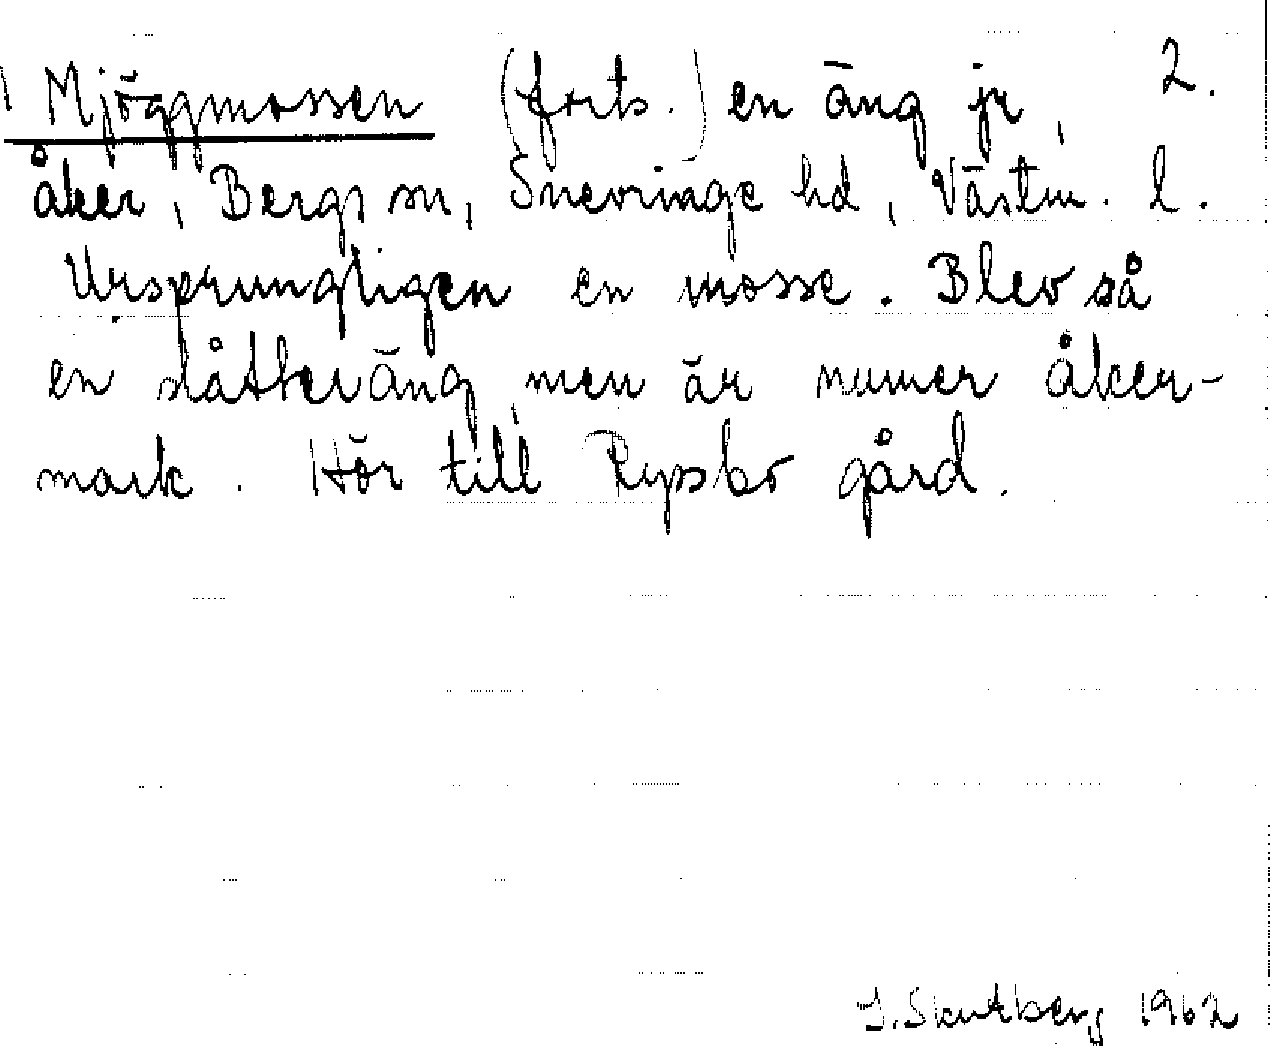 Mjöggmossen (forts.) en äng jr, 2.
åker, Bergs sn, Snevringe hd, Västm. l.
Ursprungligen en mosse. Blev så
en slåtteräng, men är numer åker-
mark. Hör till Ryssbo gård.
I. Skutberg 1962